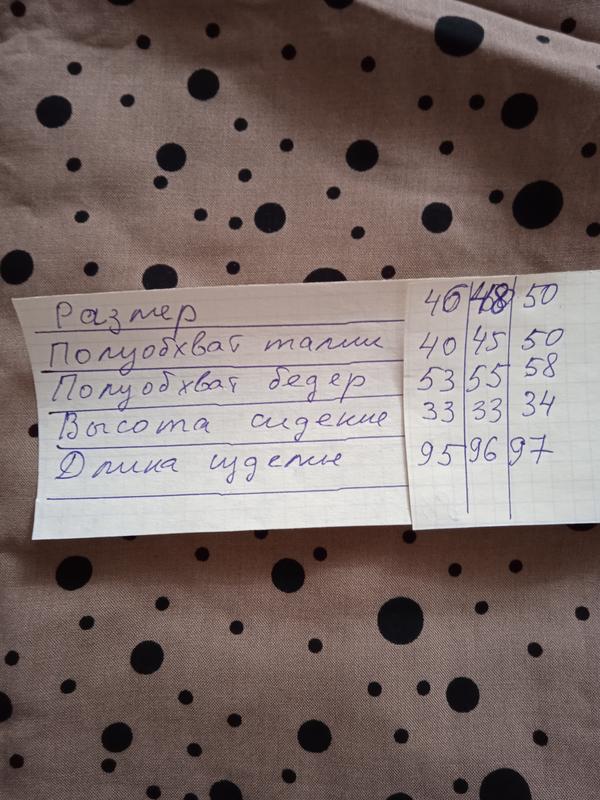 Размер 46 48 50
Полуобхват талии 40 45 50
Полуобхват бедер 53 55 58
Высота сидение 33 33 34
Длина изделие 95 96 97